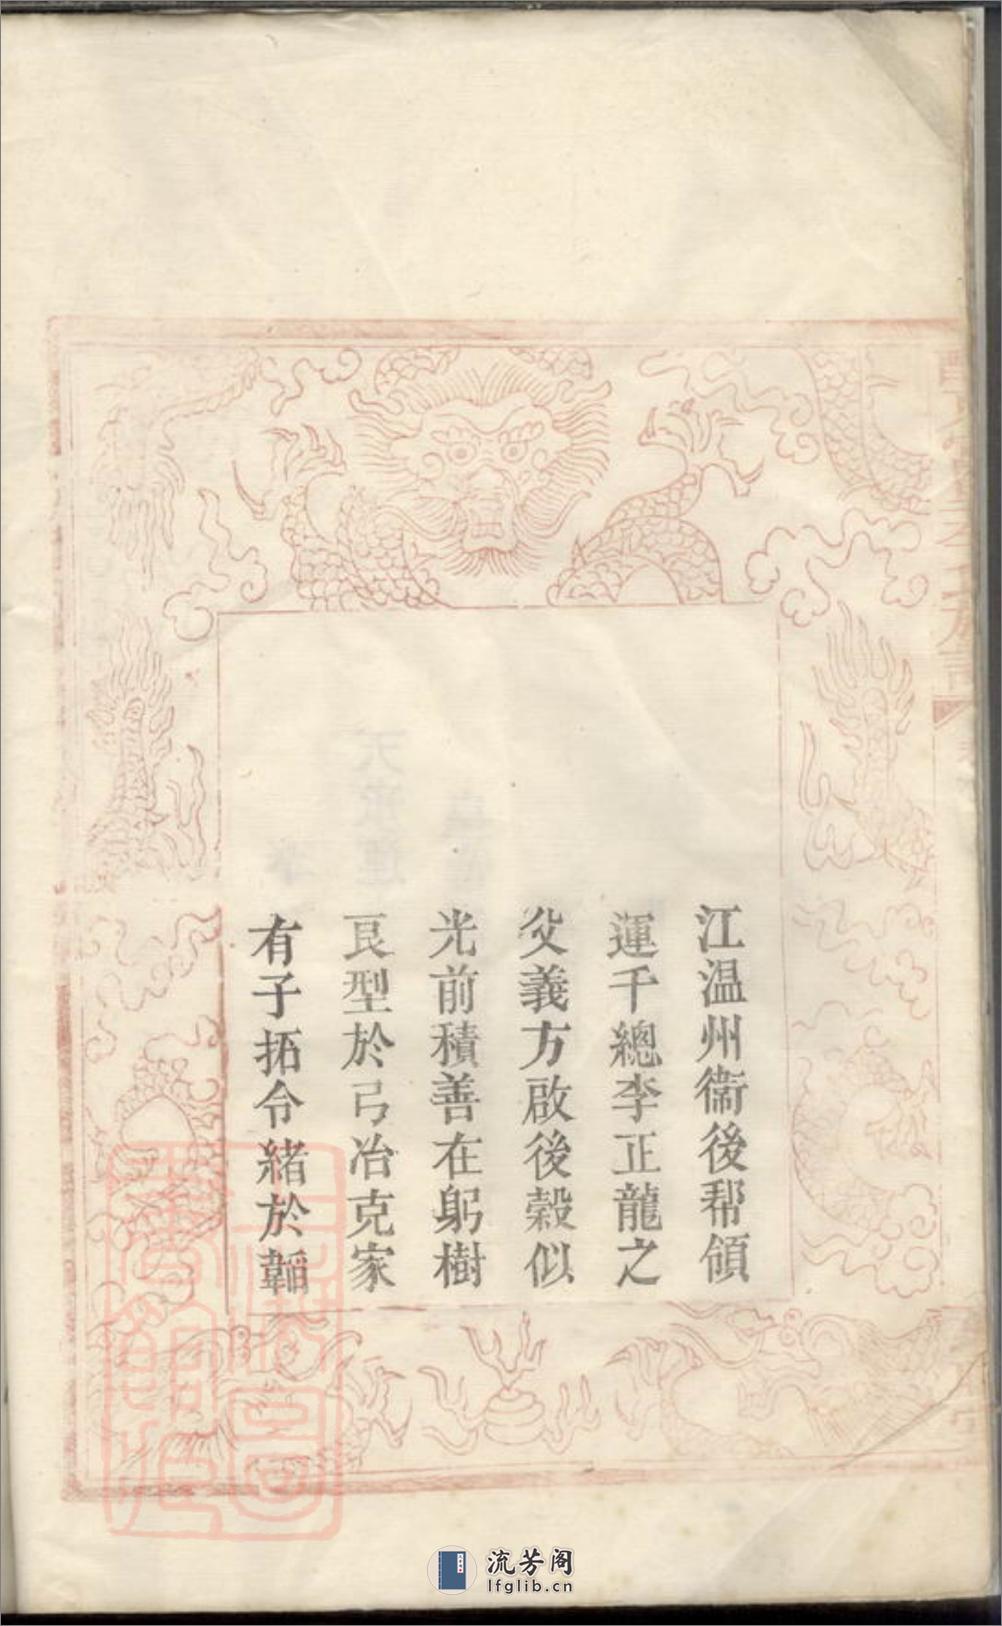 江温州衞後帮領
運千總李正龍之
父義方啟後穀似
光前積善在躬樹
良型於弓冶克家
有子拓令緒於韜
上海圖書館藏
流芳阁
lfglib.cn